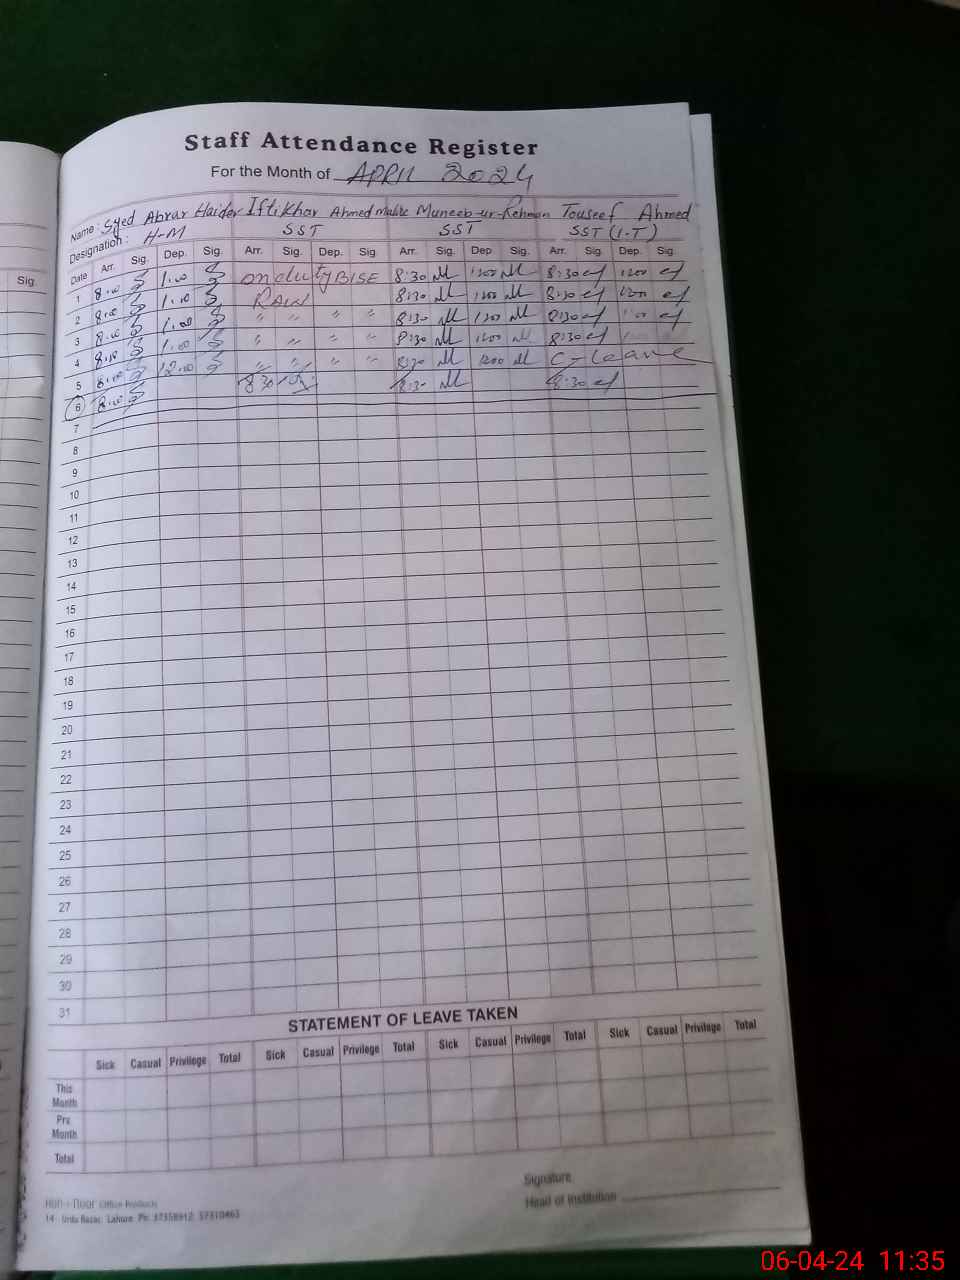 Staff Attendance Register
For the Month of APRIL 2024
Name: Syed Abrar Haider Iftikhar Ahmed Malik Muneeb-ur-Rehman Touseef Ahmed
Designation: H-M SST SST SST (I-T)
Sig. Date Arr. Sig. Dep. Sig. Arr. Sig. Dep. Sig Arr. Sig. Dep. Sig. Arr. Sig. Dep. Sig.
1 8.00 1.00 on duty BISE 8:30 1200 8:30 1200
2 8.00 1.00 RAW 8:30 1200 8:30 1200
3 8.00 1.00 " " " " 8:30 1200 8:30
4 8.00 1.00 " " " " 8:30 1200 8:30
5 8.00 12.00 " " " " 8:30 1200 C-leave
6 8.00 8:30 8:30 8:30
7
8
9
10
11
12
13
14
15
16
17
18
19
20
21
22
23
24
25
26
27
28
29
30
31
STATEMENT OF LEAVE TAKEN
Sick Casual Privilege Total Sick Casual Privilege Total Sick Casual Privilege Total Sick Casual Privilege Total
This Month
Prv. Month
Total
Signature
Head of Institution
Office Products
14 Urdu Bazar, Lahore Ph: 37358912 37310463
06-04-24 11:35